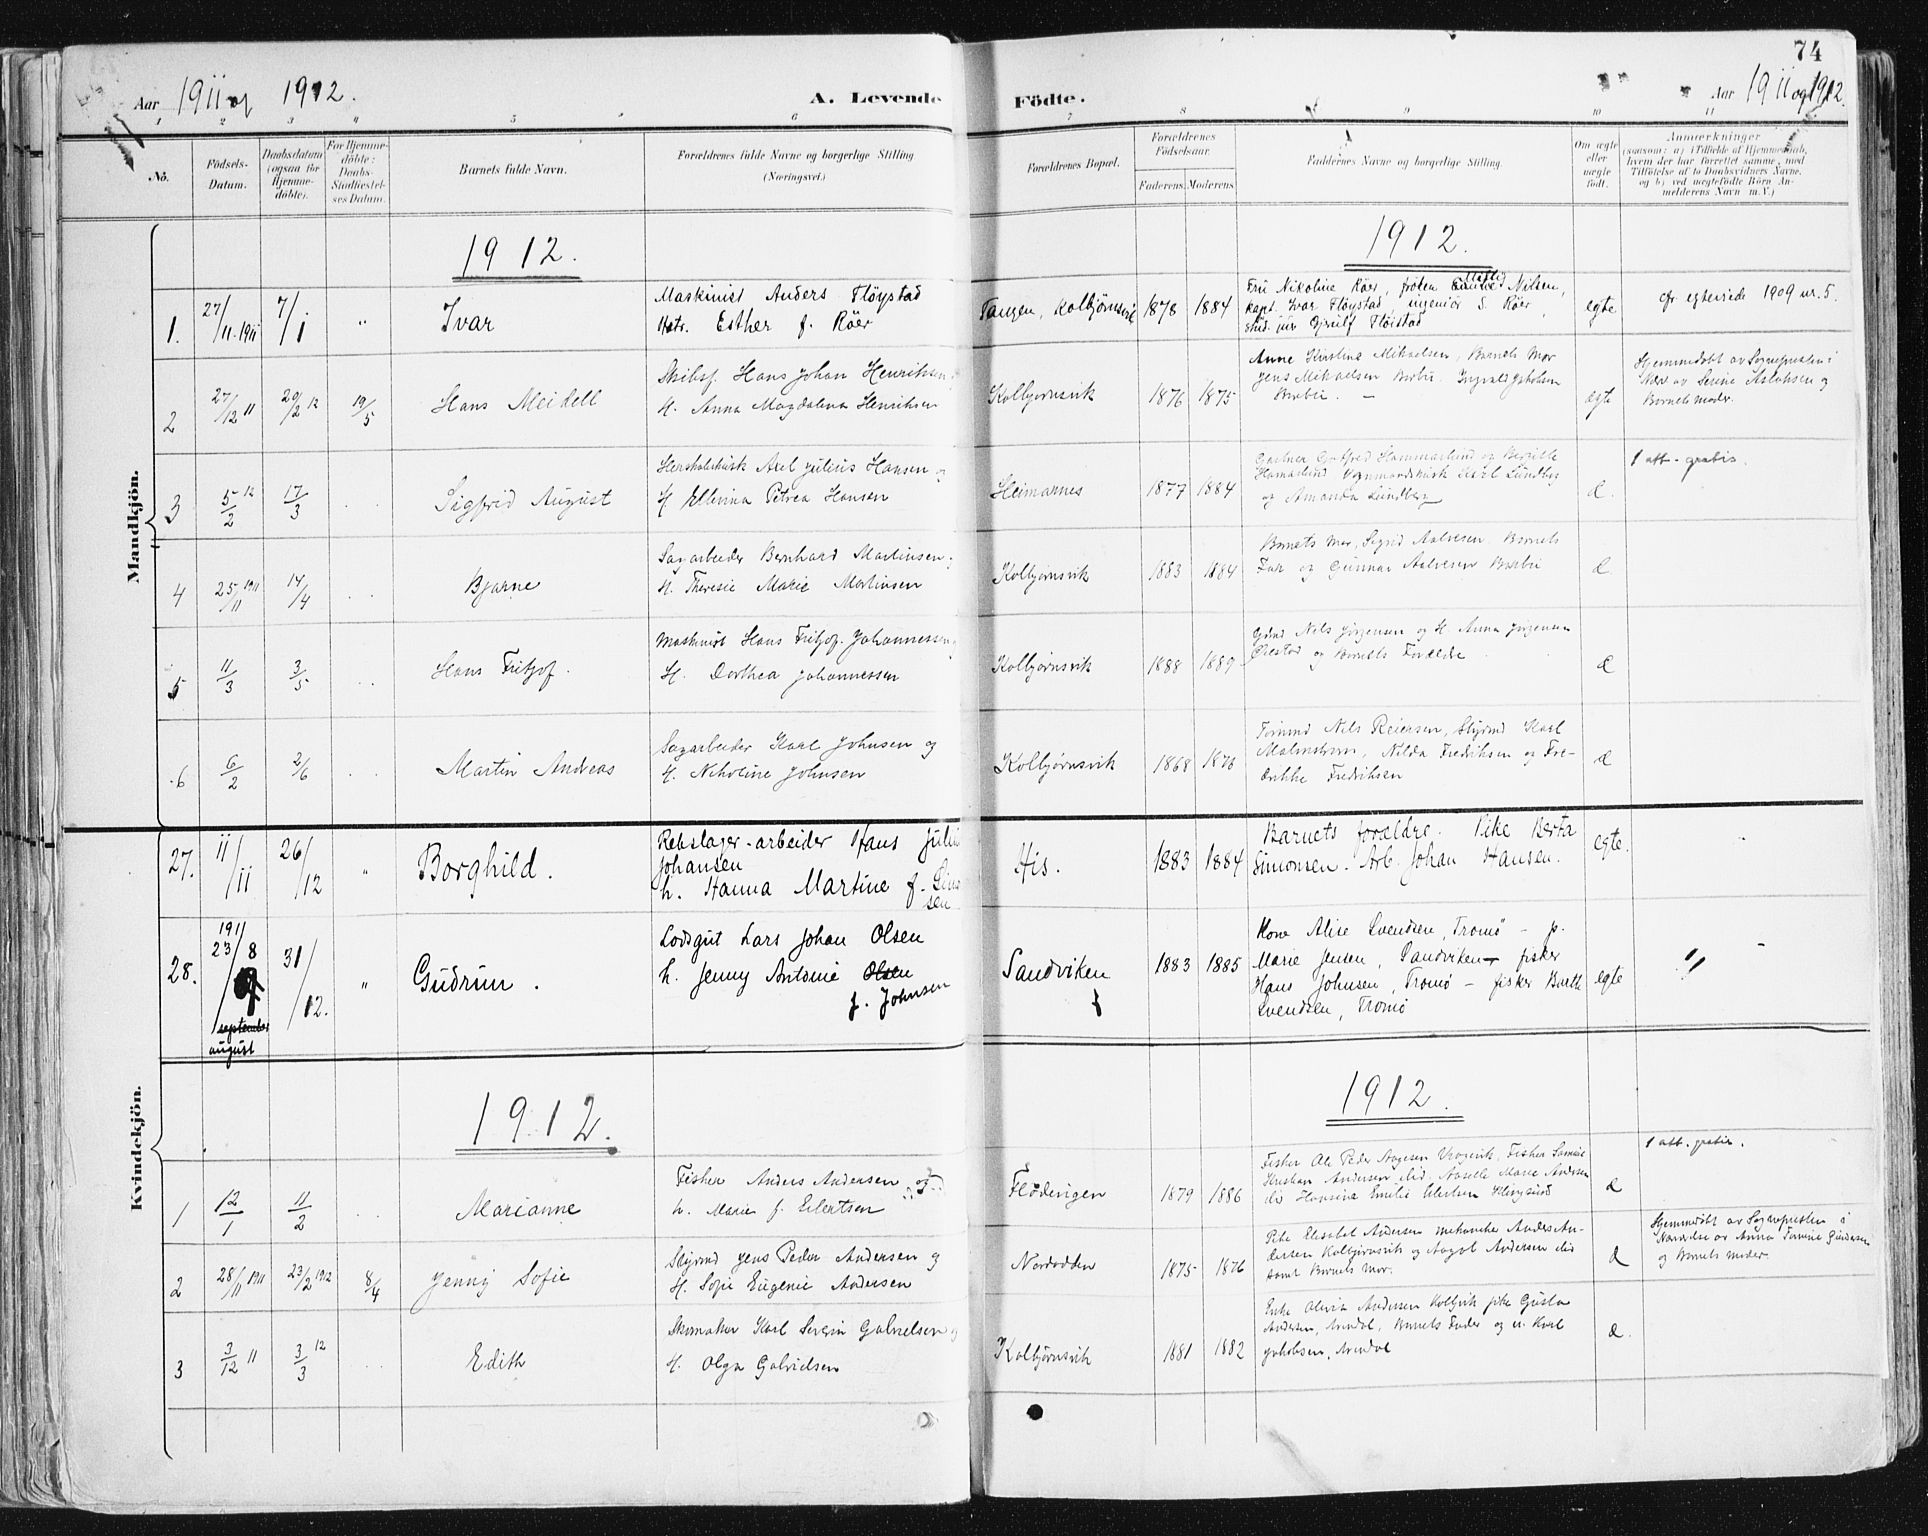 74
Aar 1911 og 1912.
A. Levende
Födte.
Aar 1911 og 1912.
1 2 3 4 5 6 7 8 9 10 11
No.
Födsels-
Datum.
Daabsdatum
(ogsaa for
Hjemme-
döbte).
For Hjemme-
döbte:
Daabs-
Stadfæstel-
ses Datum.
Barnets fulde Navn.
Forældrenes fulde Navne og borgerlige Stilling
(Næringsvei.)
Forældrenes Bopæl.
Forældrenes
Födselsaar.
Faderens.
Moderens.
Faddernes Navne og borgerlige Stilling.
Om ægte
eller
uægte
födt.
Anmærkninger
(saasom: a) i Tilfælde af Hjemmedaab,
hvem der har forrettet samme, med
Tilföielse af to Daabsvidners Navne.
og b) ved uægtefödte Börn An-
melderens Navn m. V.)
Mandkjön.
1912.
1912.
1.
27/11-1911
7/1
"
Ivar
Maskinist Anders Fløystad
Hstr. Esther f. Röer
Tangen, Kolbjørnsvik
1878
1884
Fru Nikoline Röer, frøken Nilsen,
kapt. Ivar Fløystad, ingeniör S. Röer,
stud. jur. Fløistad
egte
cfr egteviede 1909 nr. 5.
2
27/12 11
20/2 12
19/5
Hans Meidell
Skibsf. Hans Johan Henriksen
H. Anna Magdalena Henriksen
Kolbjørnsvik
1876
1875
Anne Kirstina Mikaelsen, Barnets Mor
Jens Mikaelsen Barbu. Ingvald Jakobsen
Barbu. —
ægte
Hjemmedøbt av Sognepresten i
Nær. av Serine Aslaksen og
Barnets moder.
3
5/2 12
17/3
Sigfrid August
Axel Julius Hansen og
H. Ellerina Petrea Hansen
Heimarnes
1877
1884
Gartner Gotfred Hammarlund og
Hamarlund Karl Lundberg
og Amanda Lundberg
æ.
1 att. gratis.
4
25/11 1911
14/4
Bjarne
Sagarbeider Bernhard Martinsen
H. Theresie Marie Martinsen
Kolbjørnsvik
1883
1884
Barnets Mor, Sigrid Aalvesen. Barnets
Far og Gunnar Aalvesen Barbu
æ
5
11/3
3/5
Hans Fritjof.
Maskinist Hans Fritjof. Johannessen
H. Dorthea Johannessen
Kolbjørnsvik
1888
1889
Nils Jörgensen og H. Anna Jörgensen
og Barnets Forældre
æ
6
6/2
2/6
Martin Andreas
Sagarbeider Karl Johnsen og
H. Nikoline Johnsen
Kolbjørnsvik
1868
1876
Tømmd Nils Reiersen, Styrmd Karl
Malmstrøm, Nilda Fredriksen og Fre-
drikke Fredriksen
æ
27.
11/11
26/12
"
Borghild.
Rebslager-arbeider Hans Juli
Johansen
h. Hanna Martine f. Sim
sen
His.
1883
1884
Barnets forældre. Pike Berta
Simonsen. Arb. Johan Hansen.
egte.
28.
1911
23/8
september
august
31/12.
"
Gudrun.
Lodsgut Lars Johan Olsen
h. Jenny Antonie Olsen
f. Johnsen
Sandviken
1883
1885
Kone Alise Svendsen, Tromö – p.
Marie Jensen, Sandviken – fisker
Hans Johnsen, Tromö – fisker Barth
Svendsen, Tromö
egte
"
Kvindekjön.
1912.
1912.
1
12/1
11/2
Marianne
Fisker Anders Andersen
h. Marie f. Eilertsen
Flødevigen
1879
1886
Fisker Ole Peder Aagesen Fisker
Kristian Andersen ibid. Marie Andersen
ibid Hansina Emilie Eilertsen
æ
1 att. gratis.
2
28/11 1911
23/2 1912
8/4
Jenny Sofie
Styrmd Jens Peder Andersen og
H. Sofie Eugenie Andersen
Nordodden
1875
1876
Pike Elisabet Andersen mekaniker Anders An-
dersen Kolbjørnsvik og Aagot Andersen ibid
samt Barnets Mor.
æ
Hjemmedøbt av Sognepresten i
Nærværelse av Anna Tomine Gundersen
og Barnets moder.
3
3/12 11
3/3 12
Edith
Skomaker Karl Severin Gabrielsen
H. Olga Gabrielsen
Kolbjørnsvik
1881
1882
Enke Olivia Andersen Kolbjvik pike Gusta
Andersen, Arendal, Barnets Fader og u. Karl
Jakobsen, Arendal
æ.